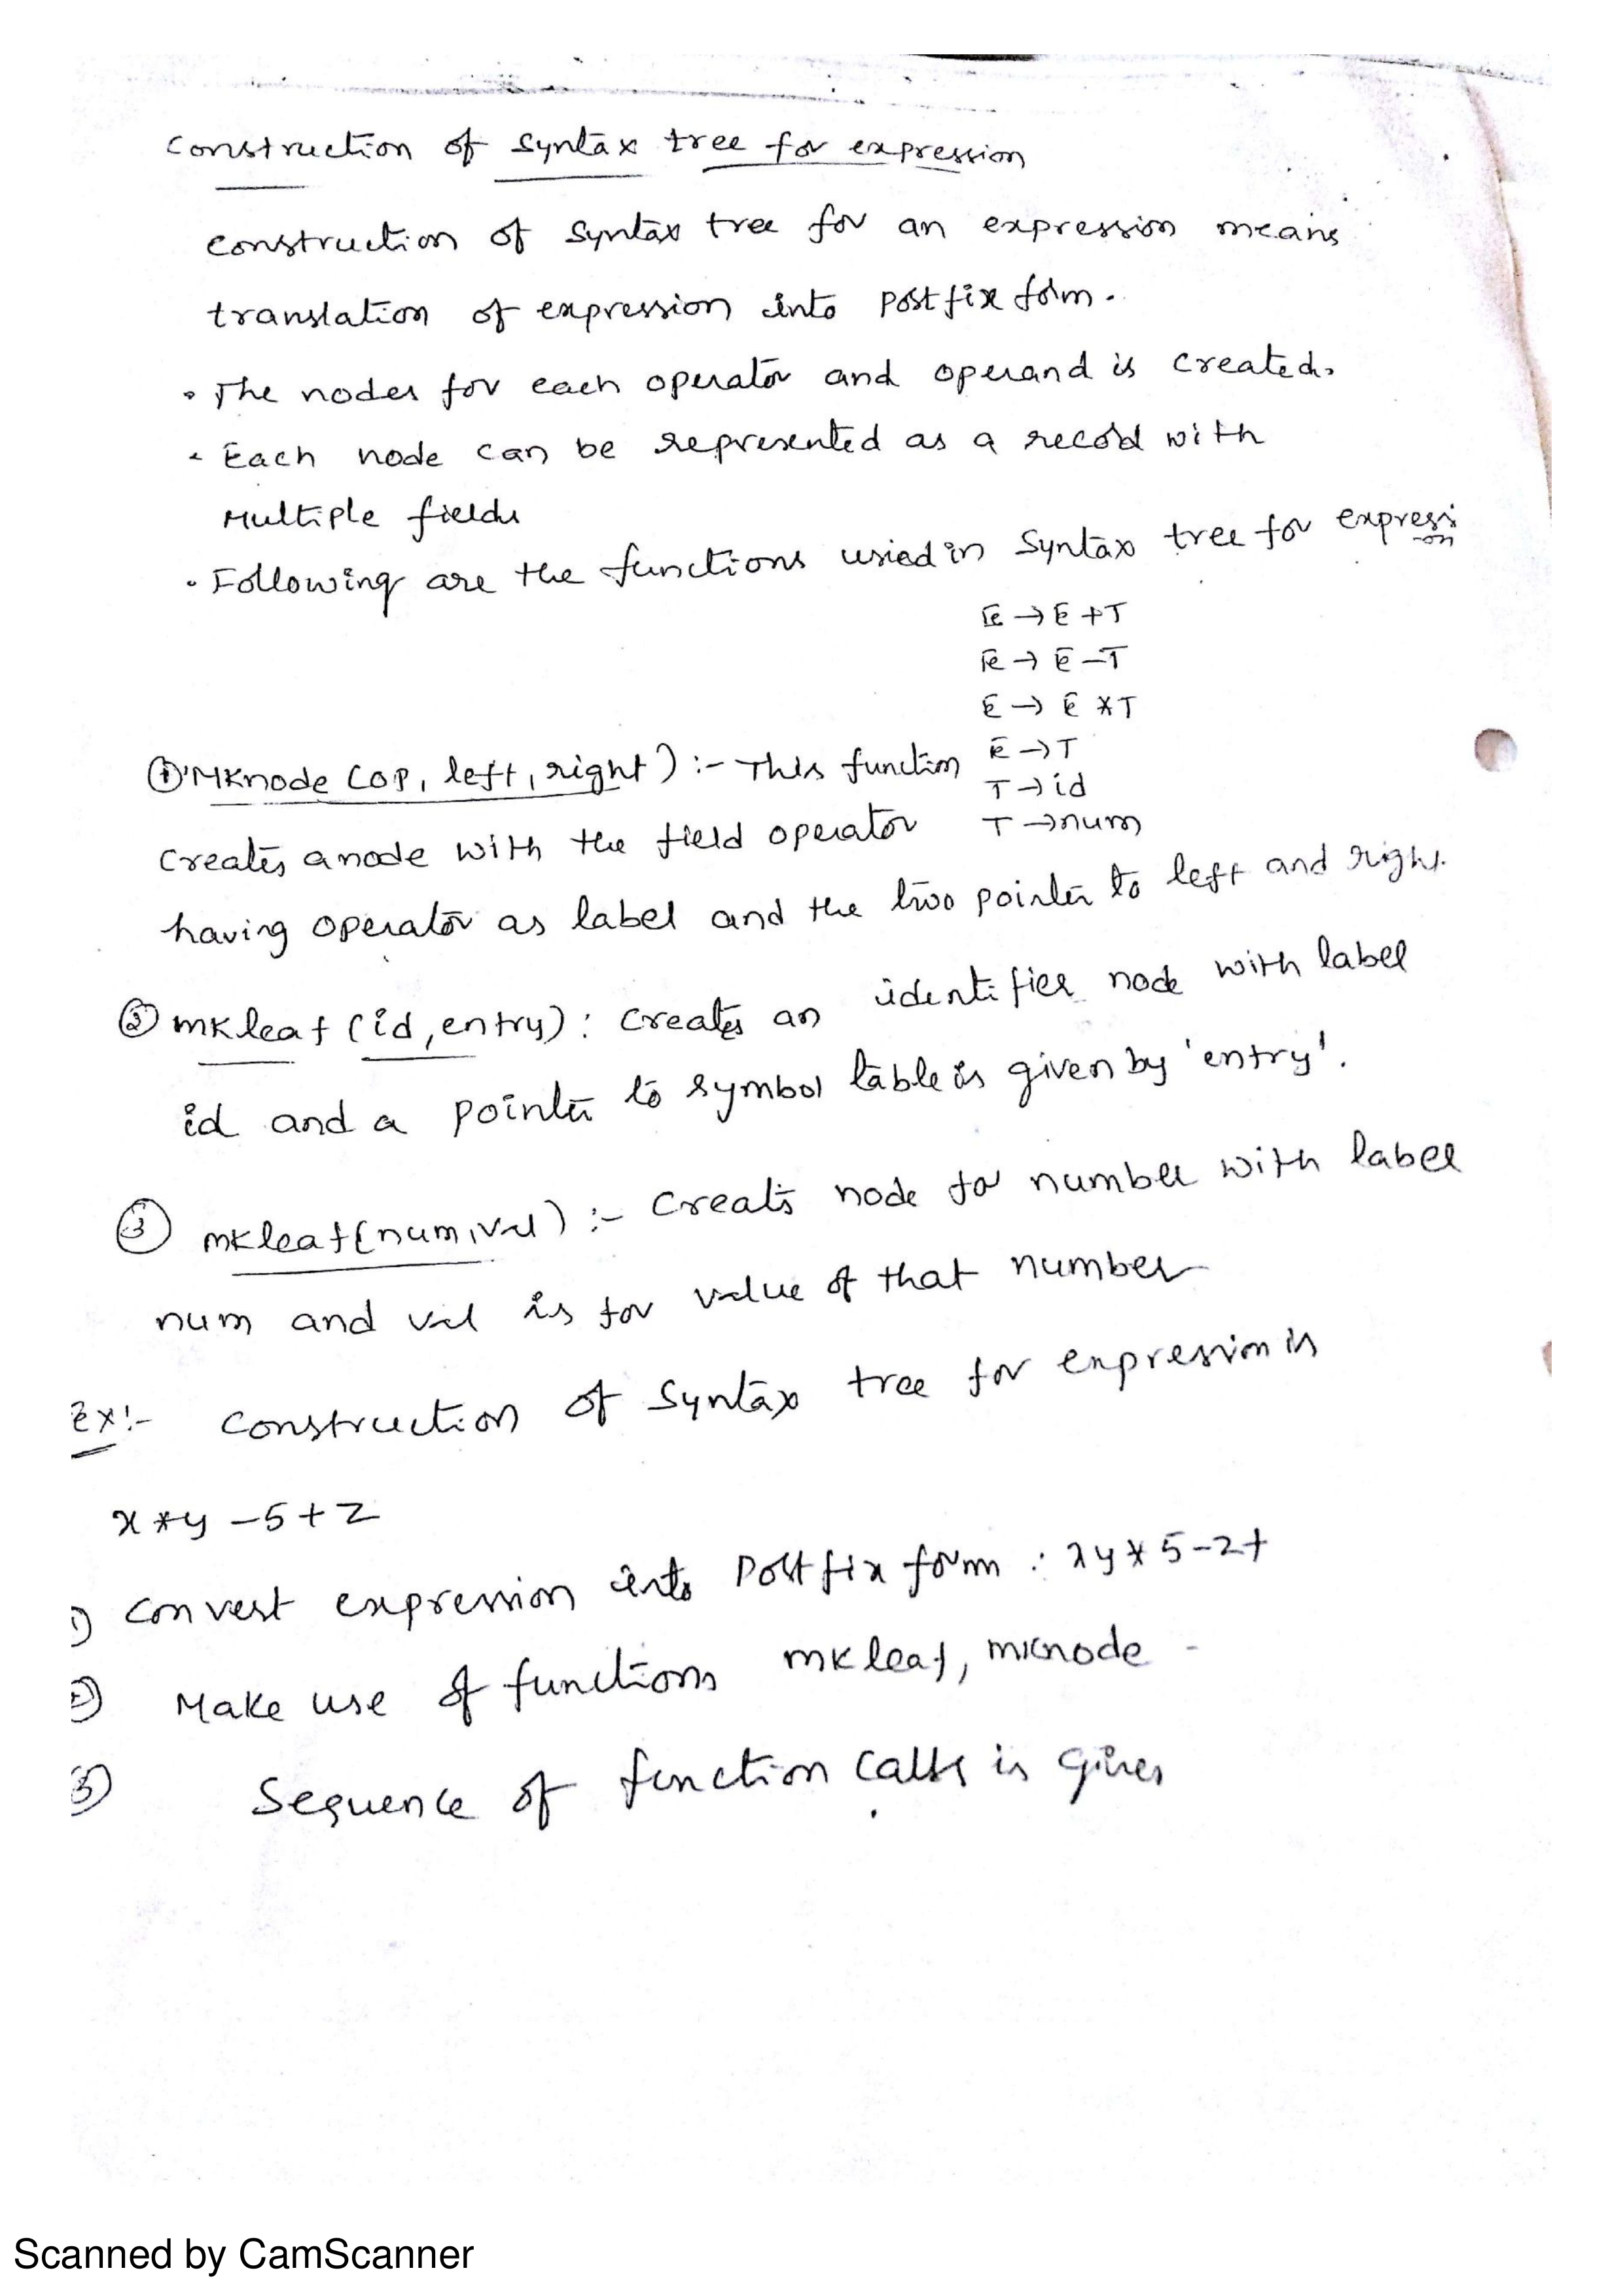 Construction of Syntax tree for expression
construction of Syntax tree for an expression means
translation of expression into postfix form.
• The nodes for each operator and operand is created.
• Each node can be represented as a record with
Multiple fields
• Following are the functions used in Syntax tree for expression
E → E + T
E → E - T
E → E * T
E → T
T → id
T → num
① Mknode (op, left, right) :- This function
creates a node with the field operator
having operator as label and the two pointer to left and right.
② mkleaf (id, entry) : creates an identifier node with label
id and a pointer to symbol table is given by 'entry'.
③ mkleaf (num, val) :- Creates node for number with label
num and val is for value of that number
Ex:- Construction of Syntax tree for expression is
x * y - 5 + z
1) Convert expression into Postfix form : xy*5-z+
2) Make use of functions mkleaf, mknode -
3) Sequence of function calls is given
Scanned by CamScanner